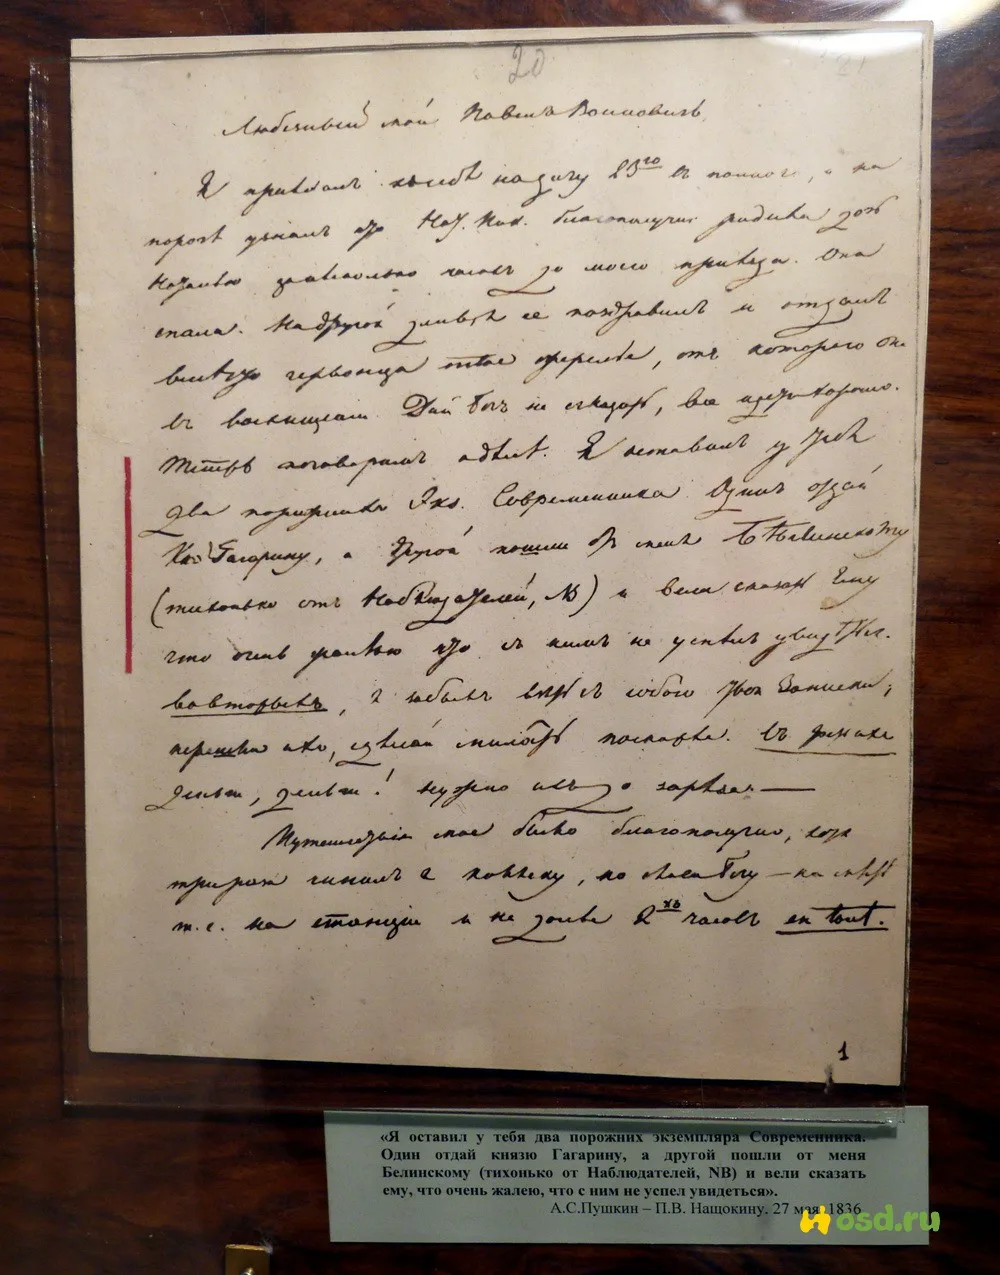 20
21
Любезный мой Павелъ Воиновичь
Я пріѣхалъ къ себѣ на дачу 23го въ полночь, и на
порогѣ узналъ что Нат. Ник. благополучно родила дочь
Наталью за нѣсколько часовъ до моего пріѣзда. Она
спала. На другой день я ее поздравилъ и отдалъ
вмѣсто червонца твое ожерелье, отъ котораго она
въ восхищеніи. Дай Богъ не сглазить, все идетъ хорошо.
Теперь поговоримъ о дѣлѣ. Я оставилъ у тебя
два порожнихъ Экз. Современника. Одинъ отдай
Кн. Гагарину, а другой пошли отъ меня Бѣлинскому
(тихонько отъ Наблюдателей, NB) и вели сказать Ему
что очень жалѣю что съ нимъ не успѣлъ увидѣться.
вовторыхъ, я забылъ взять съ собою твои Записки;
перешли ихъ, сдѣлай милость поскорѣе. въ третьихъ
деньги, деньги! нужно ихъ до зарѣза—
Путешествіе мое было благополучно, хотя
три раза чинилъ я коляску, но слава Богу — на мѣстѣ
т. е. на станціи и не долѣе 2хъ часовъ en tout.
1
«Я оставил у тебя два порожних экземпляра Современника.
Один отдай князю Гагарину, а другой пошли от меня
Белинскому (тихонько от Наблюдателей, NB) и вели сказать
ему, что очень жалею, что с ним не успел увидеться».
А.С.Пушкин – П.В. Нащокину. 27 мая 1836
osd.ru